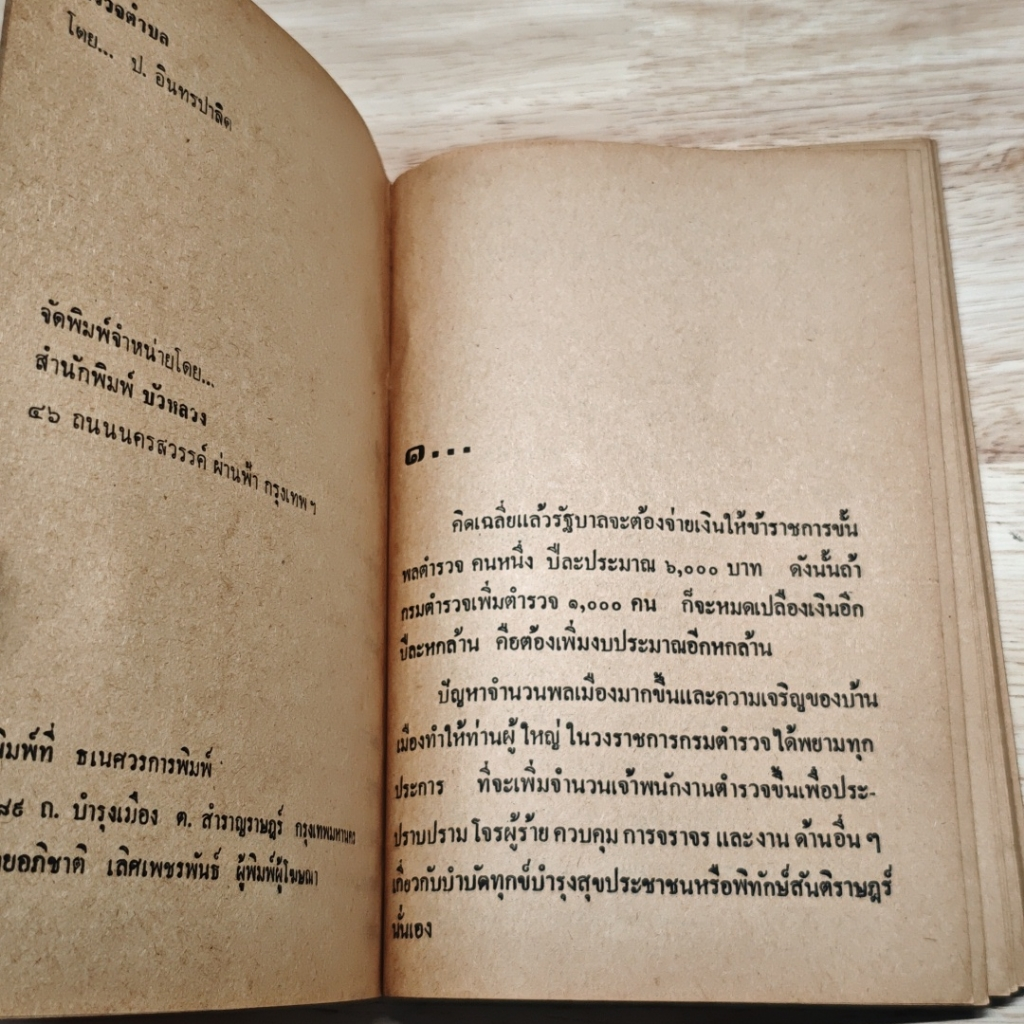 ตำบล
โดย... ป. อินทรปาลิต
จัดพิมพ์จำหน่ายโดย...
สำนักพิมพ์ บัวหลวง
๔๖ ถนนนครสวรรค์ ผ่านฟ้า กรุงเทพฯ
พิมพ์ที่ ธเนศวรการพิมพ์
๘๙ ถ. บำรุงเมือง ต. สำราญราษฎร์ กรุงเทพมหานคร
อภิชาติ เลิศเพชรพันธ์ ผู้พิมพ์ผู้โฆษณา
๑...
คิดเฉลี่ยแล้วรัฐบาลจะต้องจ่ายเงินให้ข้าราชการชั้น
พลตำรวจ คนหนึ่ง ปีละประมาณ ๖,๐๐๐ บาท ดังนั้นถ้า
กรมตำรวจเพิ่มตำรวจ ๑,๐๐๐ คน ก็จะหมดเปลืองเงินอีก
ปีละหกล้าน คือต้องเพิ่มงบประมาณอีกหกล้าน
ปัญหาจำนวนพลเมืองมากขึ้นและความเจริญของบ้าน
เมืองทำให้ท่านผู้ใหญ่ ในวงราชการกรมตำรวจได้พยามทุก
ประการ ที่จะเพิ่มจำนวนเจ้าพนักงานตำรวจขึ้นเพื่อประ-
ปราบปราม โจรผู้ร้าย ควบคุม การจราจร และงาน ด้านอื่น ๆ
เกี่ยวกับบำบัดทุกข์บำรุงสุขประชาชนหรือพิทักษ์สันติราษฎร์
นั่นเอง